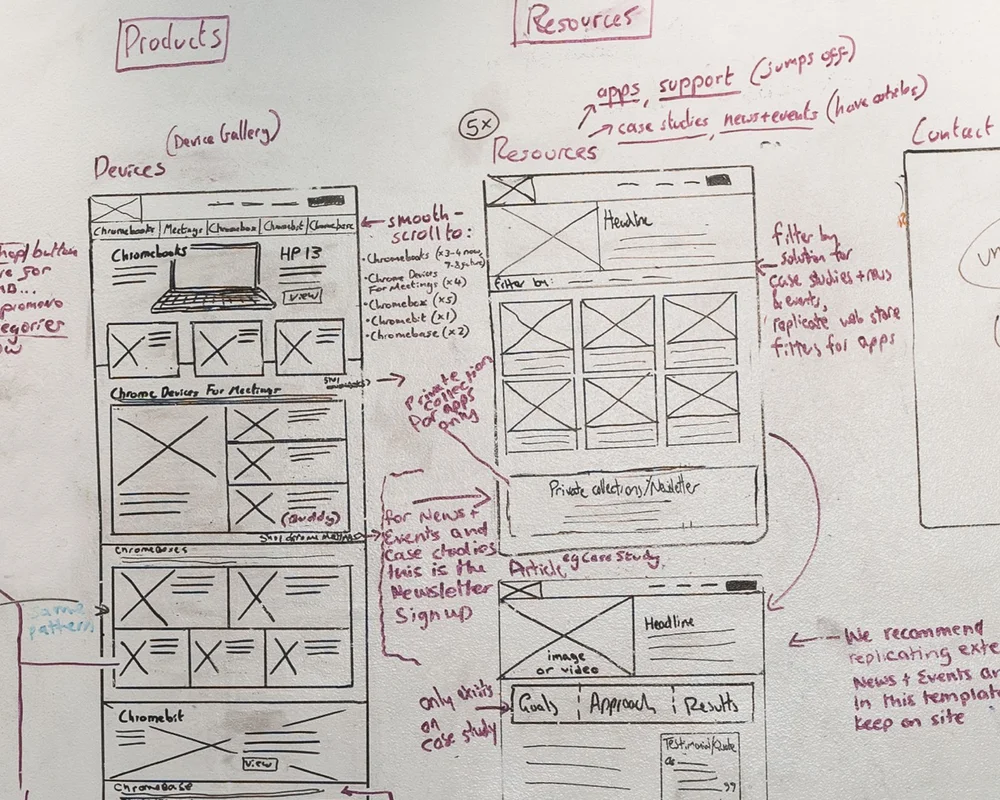 Products
Resources
apps, support (jumps off)
case studies, news+events (have articles)
5x
Contact
(Device Gallery)
Devices
Resources
Chromebooks | Meetings | Chromebox | Chromebit | Chromebase
smooth-
scroll to:
• Chromebooks (x3-4 now,
7-8 future)
• Chrome Devices
For Meetings (x4)
• Chromebox (x5)
• Chromebit (x1)
• Chromebase (x2)
Chromebooks
HP 13
view
button
for
promo
egories
Chrome Devices For Meetings
(Buddy)
Chromeboxes
same
pattern
Chromebit
view
ChromeBase
Headline
Filter by:
filter by
solution for
case studies + news
& events,
replicate web store
filters for apps
Private
collection
for apps
only
Private collections/Newsletter
for News +
Events and
case studies
this is the
Newsletter
Sign up
Article, eg Case Study
Headline
image
or video
only exists
on
case study
Goals | Approach | Results
Testimonial/Quote
We recommend
replicating
News + Events
in this template
keep on site